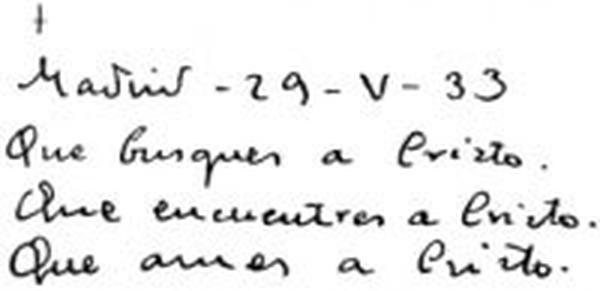 †
Madrid - 29 - V - 33
Que busques a Cristo.
Que encuentres a Cristo.
Que ames a Cristo.